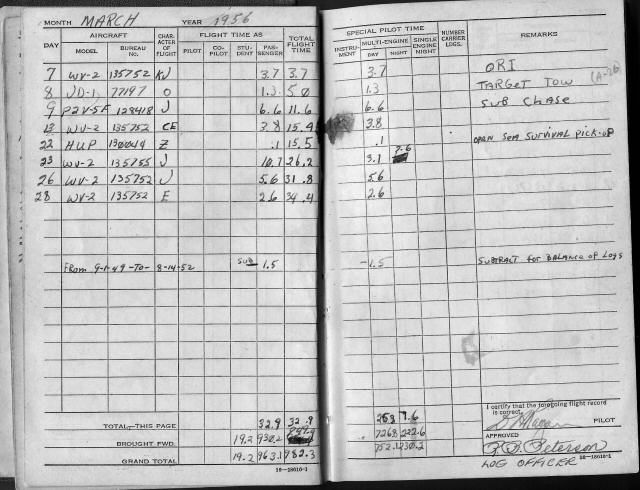 MONTH MARCH YEAR 1956
DAY AIRCRAFT CHARACTER OF FLIGHT FLIGHT TIME AS TOTAL FLIGHT TIME
MODEL BUREAU NO. PILOT CO-PILOT STUDENT PASSENGER
7 WV-2 135752 KJ 3.7 3.7
8 JD-1 77197 O 1.3 5.0
9 P2V-5F 128418 J 6.6 11.6
13 WV-2 135752 CE 3.8 15.4
22 HUP Z .1 15.5
23 WV-2 135755 J 10.7 26.2
26 WV-2 135752 J 5.6 31.8
28 WV-2 135752 E 2.6 34.4
FROM 9-1-49 -TO- 8-14-52 SUB 1.5
TOTAL—THIS PAGE 32.9 32.9
BROUGHT FWD. 19.2 930.2
GRAND TOTAL 19.2 963.1
16—18610-1
SPECIAL PILOT TIME NUMBER CARRIER LDGS. REMARKS
INSTRUMENT MULTI-ENGINE SINGLE ENGINE NIGHT
DAY NIGHT
3.7 ORI
1.3 TARGET TOW (A-26)
6.6 SUB CHASE
3.8
.1 OPEN SEA SURVIVAL PICK-UP
3.1 7.6
5.6
2.6
-1.5 SUBTRACT FOR BALANCE OF LOGS
I certify that the foregoing flight record is correct.
25.3 7.6
PILOT
726.8 222.6
APPROVED
752.1 230.2
PETERSON
16—18610-1
LOG OFFICER